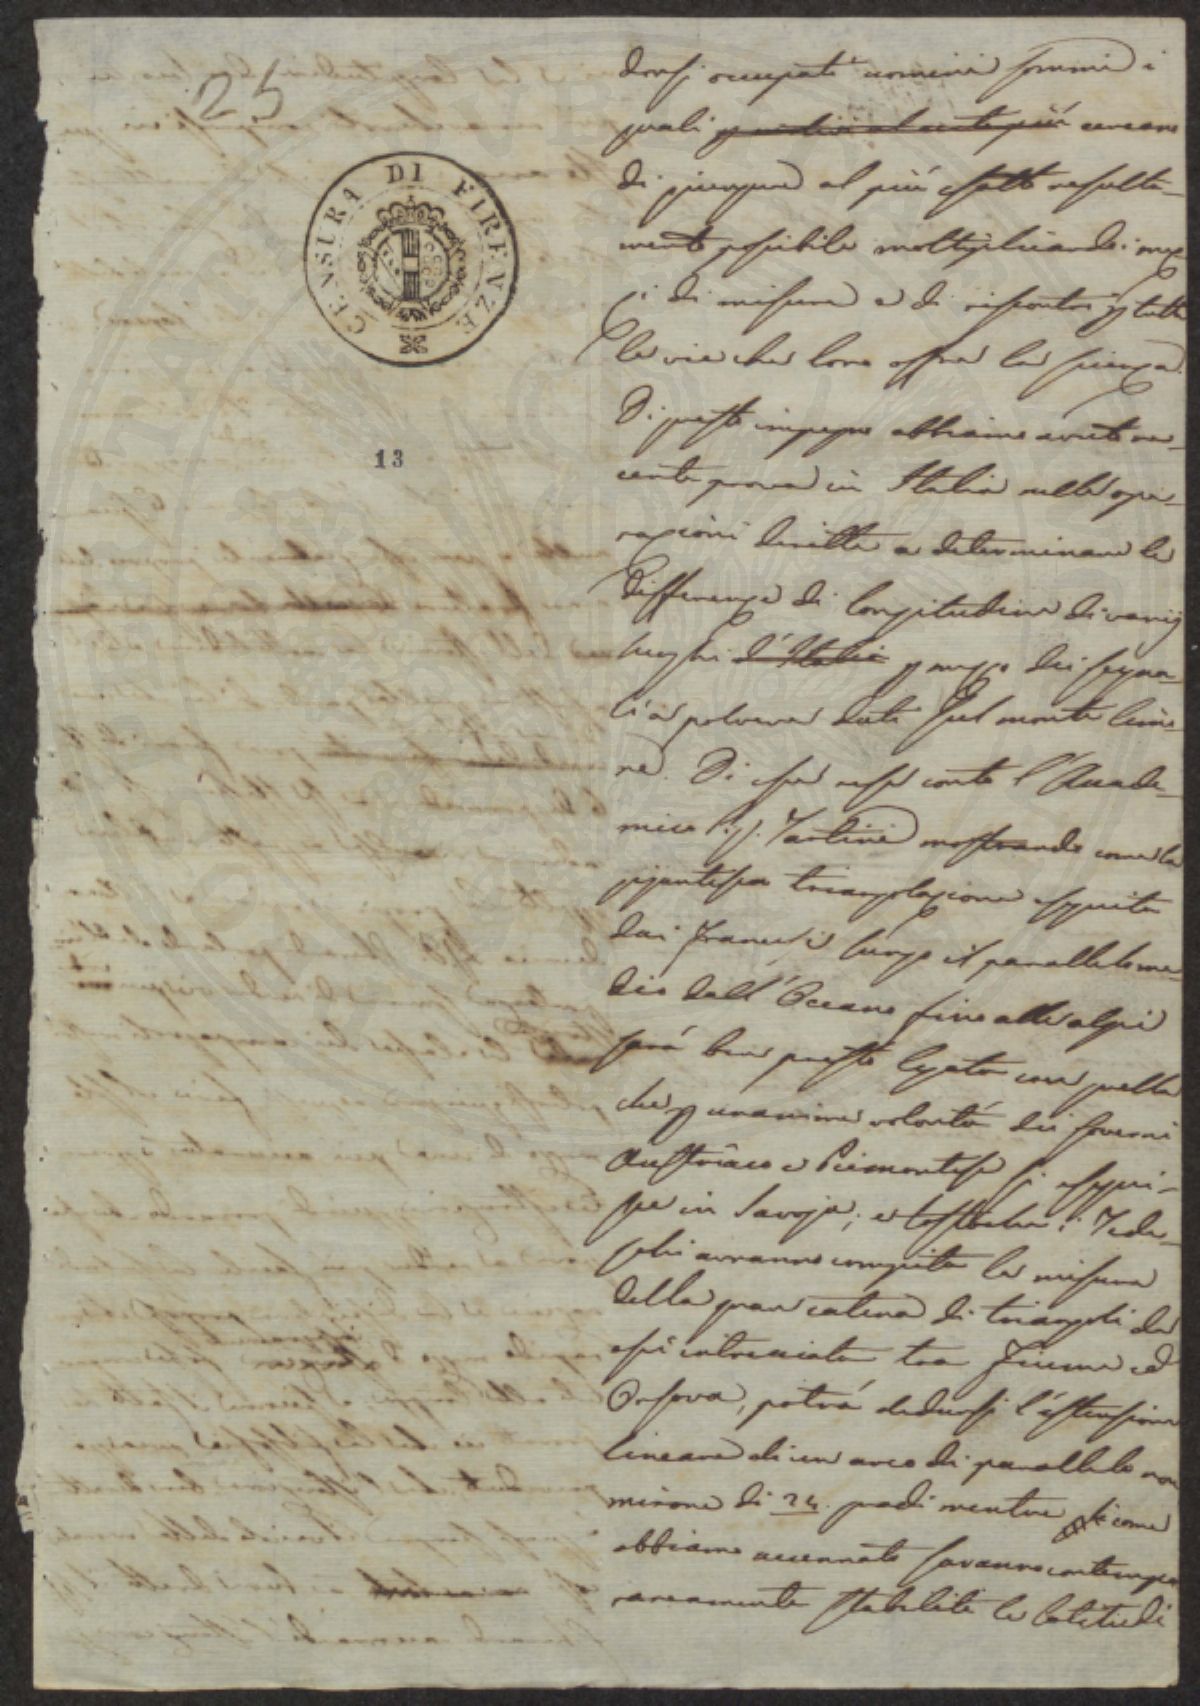 25
CENSURA DI FIRENZE
13
dersi occupati uomini sommi i
quali cercano
di giungere al più esatto resulta-
mento possibile moltiplicando i mez
zi di misura e di riscontri p tutte
le vie che loro offre la scienza.
Di questo impegno abbiamo avuto re-
cente prova in Italia nelle ope-
razioni dirette a determinare le
differenze di longitudine di varij
luoghi d'Italia p mezzo dei segna-
li a polvere dati sul monte Cimo-
ne. Di esse rese conto l'Accade-
mico Tartini mostrando come la
gigantesca triangolazione eseguita
dai Francesi lungo il parallelo me
dio dall'Oceano fino alle alpi
sarà ben presto legata con quella
che p unanime volontà dei Governi
Austriaco e Piemontese si esegui-
sce in Savoja; e tostoche i Tede-
schi avranno compita la misura
della gran catena di triangoli da
essi intrecciata tra Fiume ed
Orsova, potrà dedursi l'estensione
lineare di un arco di parallelo non
minore di 24. gradi mentre siccome
abbiamo accennato saranno contempo
raneamente stabilite le latitudi